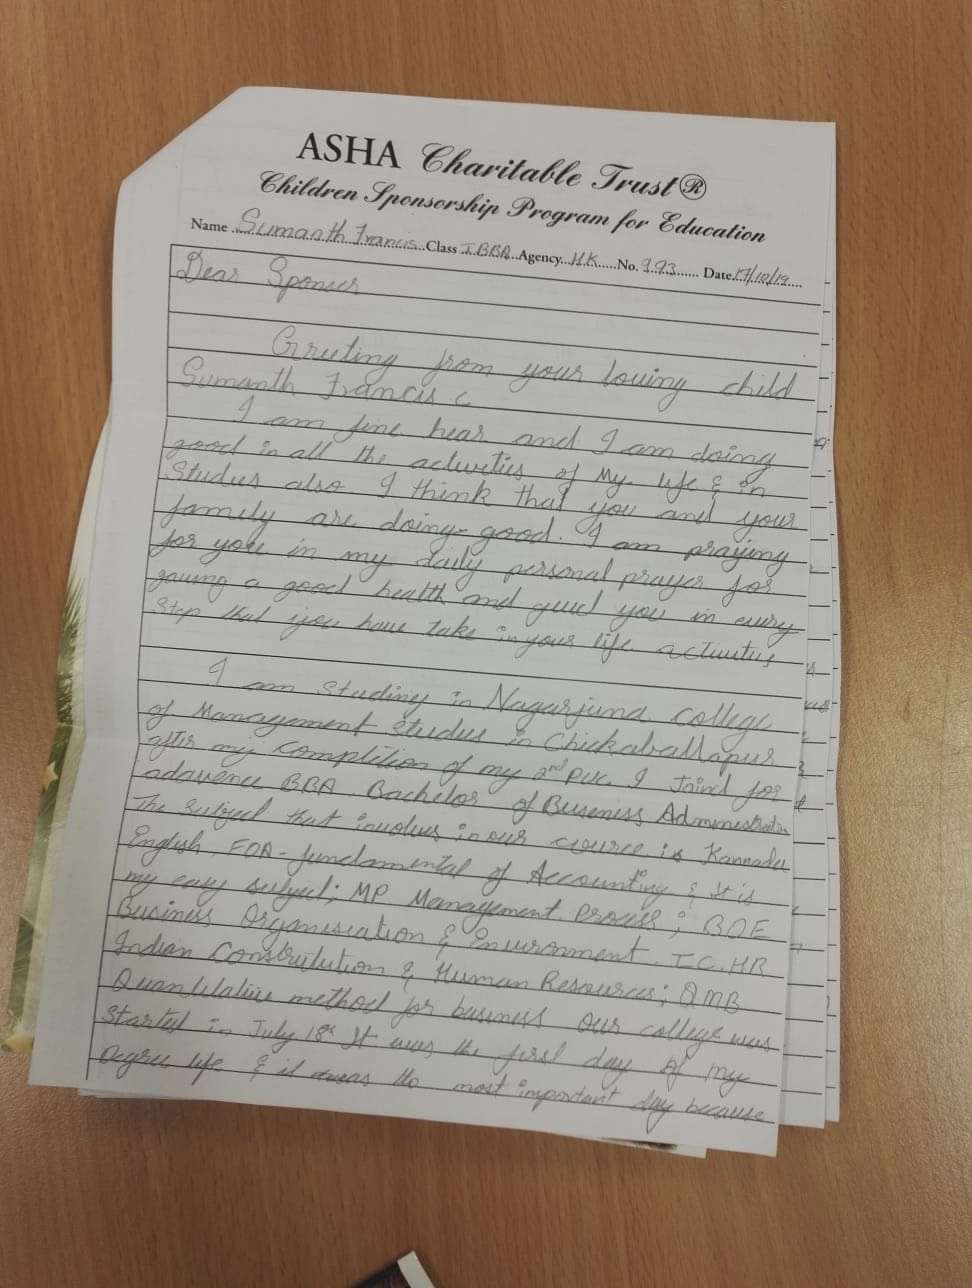 ASHA Charitable Trust®
Children Sponsorship Program for Education
Name Sumanth Francis Class I BBA Agency HK No. 993 Date 17/10/19
Dear Sponser
Greeting from your loving child
Sumanth Francis c
I am fine hear and I am doing
good in all the activities of my life & in
Studies also I think that you and your
family are doing good. I am praying
for you in my daily personal prayer for
giving a good health and guid you in every
step that you have take in your life activities
I am studing in Nagarjuna college
of Management studies in Chickaballapur
after my complition of my 2nd puc. I Joind for
adavence BBA. Bachelor of Business Administration
The subject that involves in our cource is Kannada
English, FOA - fundamental of Accounting & It is
my easy subject; MP Management Process; BOE
Business Organisation & Environment. IC. HR
Indian Constitution & Human Resources; QMB
Quantitative method for business our college was
started in July 18th It was the first day of my
Degree life & it was the most important day because